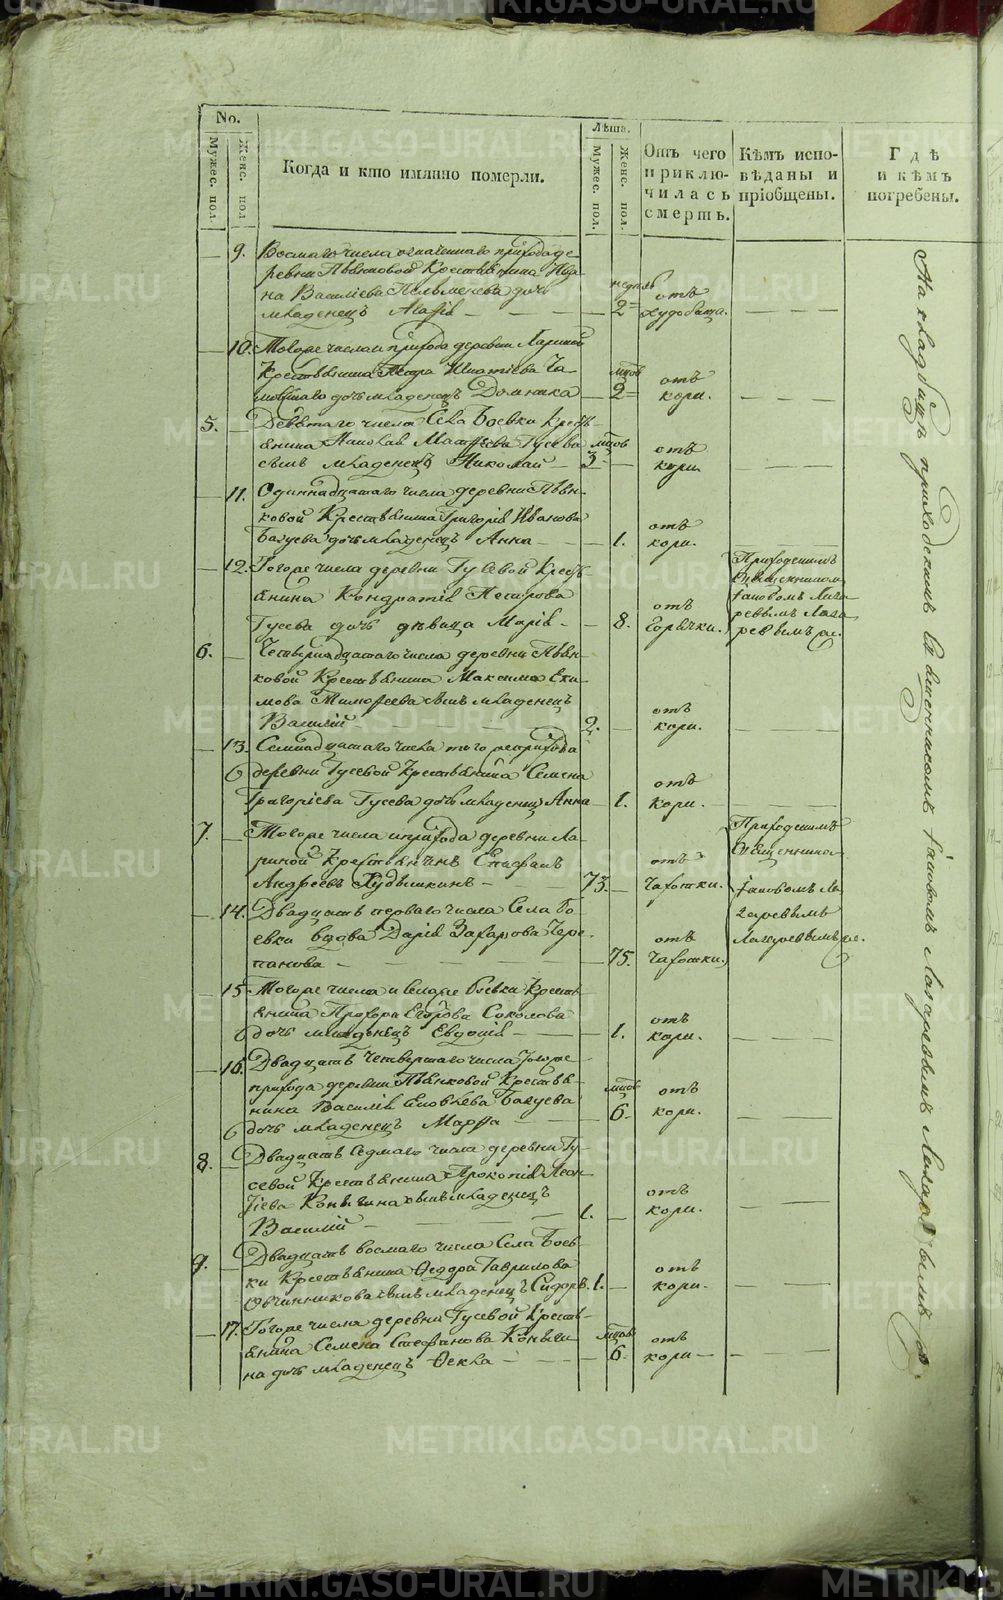 No.
Мужес. пол.
Женс. пол.
Когда и кто имянно померли.
Лѣта.
Мужес. пол.
Женс. пол.
Отъ чего приклю-чилась смерть.
Кѣмъ испо-вѣданы и пріобщены.
Гдѣ и кѣмъ погребены.
9. Восмаго числа означеннаго прихода де-
ревни Пьянковой Крестьянина
на Василіева дочь недель
младенецъ Агафія 2 отъ худобища.
10. Тогоже числа и прихода деревни Лариной
Крестьянина Петра Игнатіева мцов
дочь младенецъ Домника 2 отъ кори.
5. Девятаго числа Села Боевки Кресть-
янина Матфѣева Гусева мцов
сынъ младенецъ Николай 3 отъ кори
11. Одиннадцатаго числа деревни Пьян-
ковой Крестьянина Григорія Иванова
Бахуева дочь младенецъ Анна 1. отъ кори.
12. Тогоже числа деревни Гусевой Кресть-
янина Кондратія Петрова
Гусева дочь дѣвица Марія 8. отъ Горячки.
Приходскимъ
Священникомъ
Іаковомъ Лаза-
ревымъ Лаза-
ревымъ же.
6. Четвертнадцатаго числа деревни Пьян-
ковой Крестьянина Максима Еки-
мова Тимофеева сынъ младенецъ
Василій 2. отъ кори.
13. Семнадцатаго числа того же прихода
деревни Гусевой Крестьянина Семена
Григоріева Гусева дочь младенецъ Анна 1. отъ кори.
7. Тогоже числа и прихода деревни Ла-
риной Крестьянинъ Епифанъ
Андреевъ Худышкинъ 73. отъ Чахотки.
Приходскимъ
Священником
Іаковомъ Ла-
заревымъ
Лазаревымъ же.
14. Двадцать перваго числа Села Бо-
евки вдова Дарія Захарова Чере-
панова 75. отъ Чахотки.
15. Тогоже числа и Села же Боевки Кресть-
янина Прохора Егорова Соколова
дочь младенецъ Евдокія 1. отъ кори.
16. Двадцать Четвертаго числа тогоже
прихода деревни Пьянковой Крестья-
нина Василія Яковлева Бахуева мцов
дочь младенецъ Марфа 6. отъ кори.
8. Двадцать Седмаго числа деревни Гу-
севой Крестьянина Прокопія Леон-
тіева Конычина сынъ младенецъ
Василій 1. отъ кори.
9. Двадцать восмаго числа Села Боев-
ки Крестьянина Ѳедора Гаврилова
Овчинникова сынъ младенецъ Сидоръ. 1. отъ кори.
17. Тогоже числа деревни Гусевой Кресть-
янина Семена Стефанова Конычи- мцов
на дочь младенецъ Ѳекла 6. отъ кори
На кладбищѣ приходскимъ Священникомъ Іаковомъ Лазаревымъ Лазаревымъ
METRIKI.GASO-URAL.RU